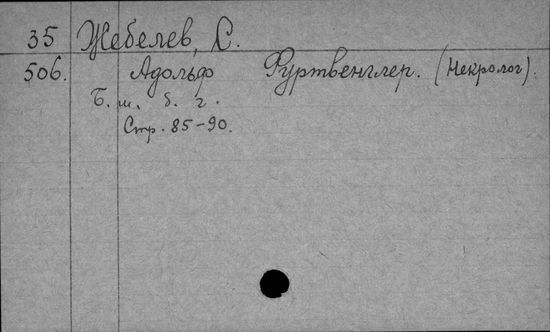 35 Жебелев, С.
506. Адольф Фуртвенглер. (Некролог).
Б. м. б. г.
Стр. 85-90.